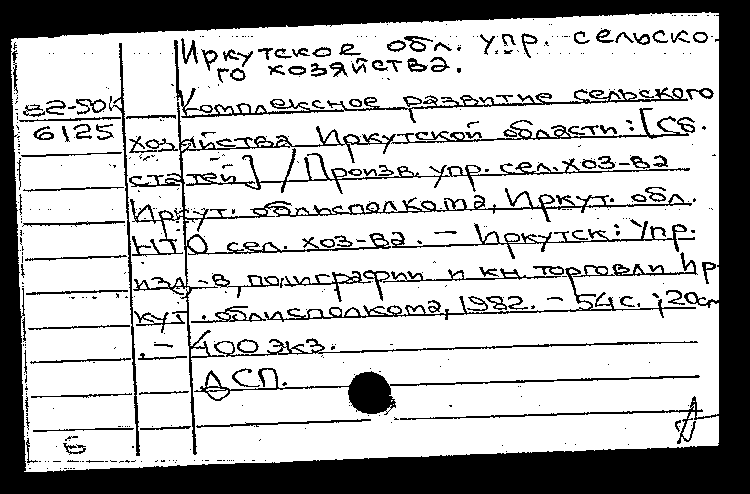 Иркутское обл. упр. сельско-
го хозяйства.
82-50к Комплексное развитие сельского
6125 хозяйства Иркутской области: [Сб.
статей] / Произв. упр. сел. хоз-ва
Иркут. облисполкома, Иркут. обл.
НТО сел. хоз-ва. – Иркутск: Упр.
изд-в, полиграфии и кн. торговли Ир-
кут. облисполкома, 1982. – 54 с.; 20см
. – 400 экз.
ДСП.
Б